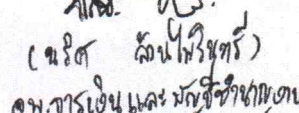 (นริศ ล้านไพรินทร์)
จพ.การเงินและบัญชีชำนาญงาน